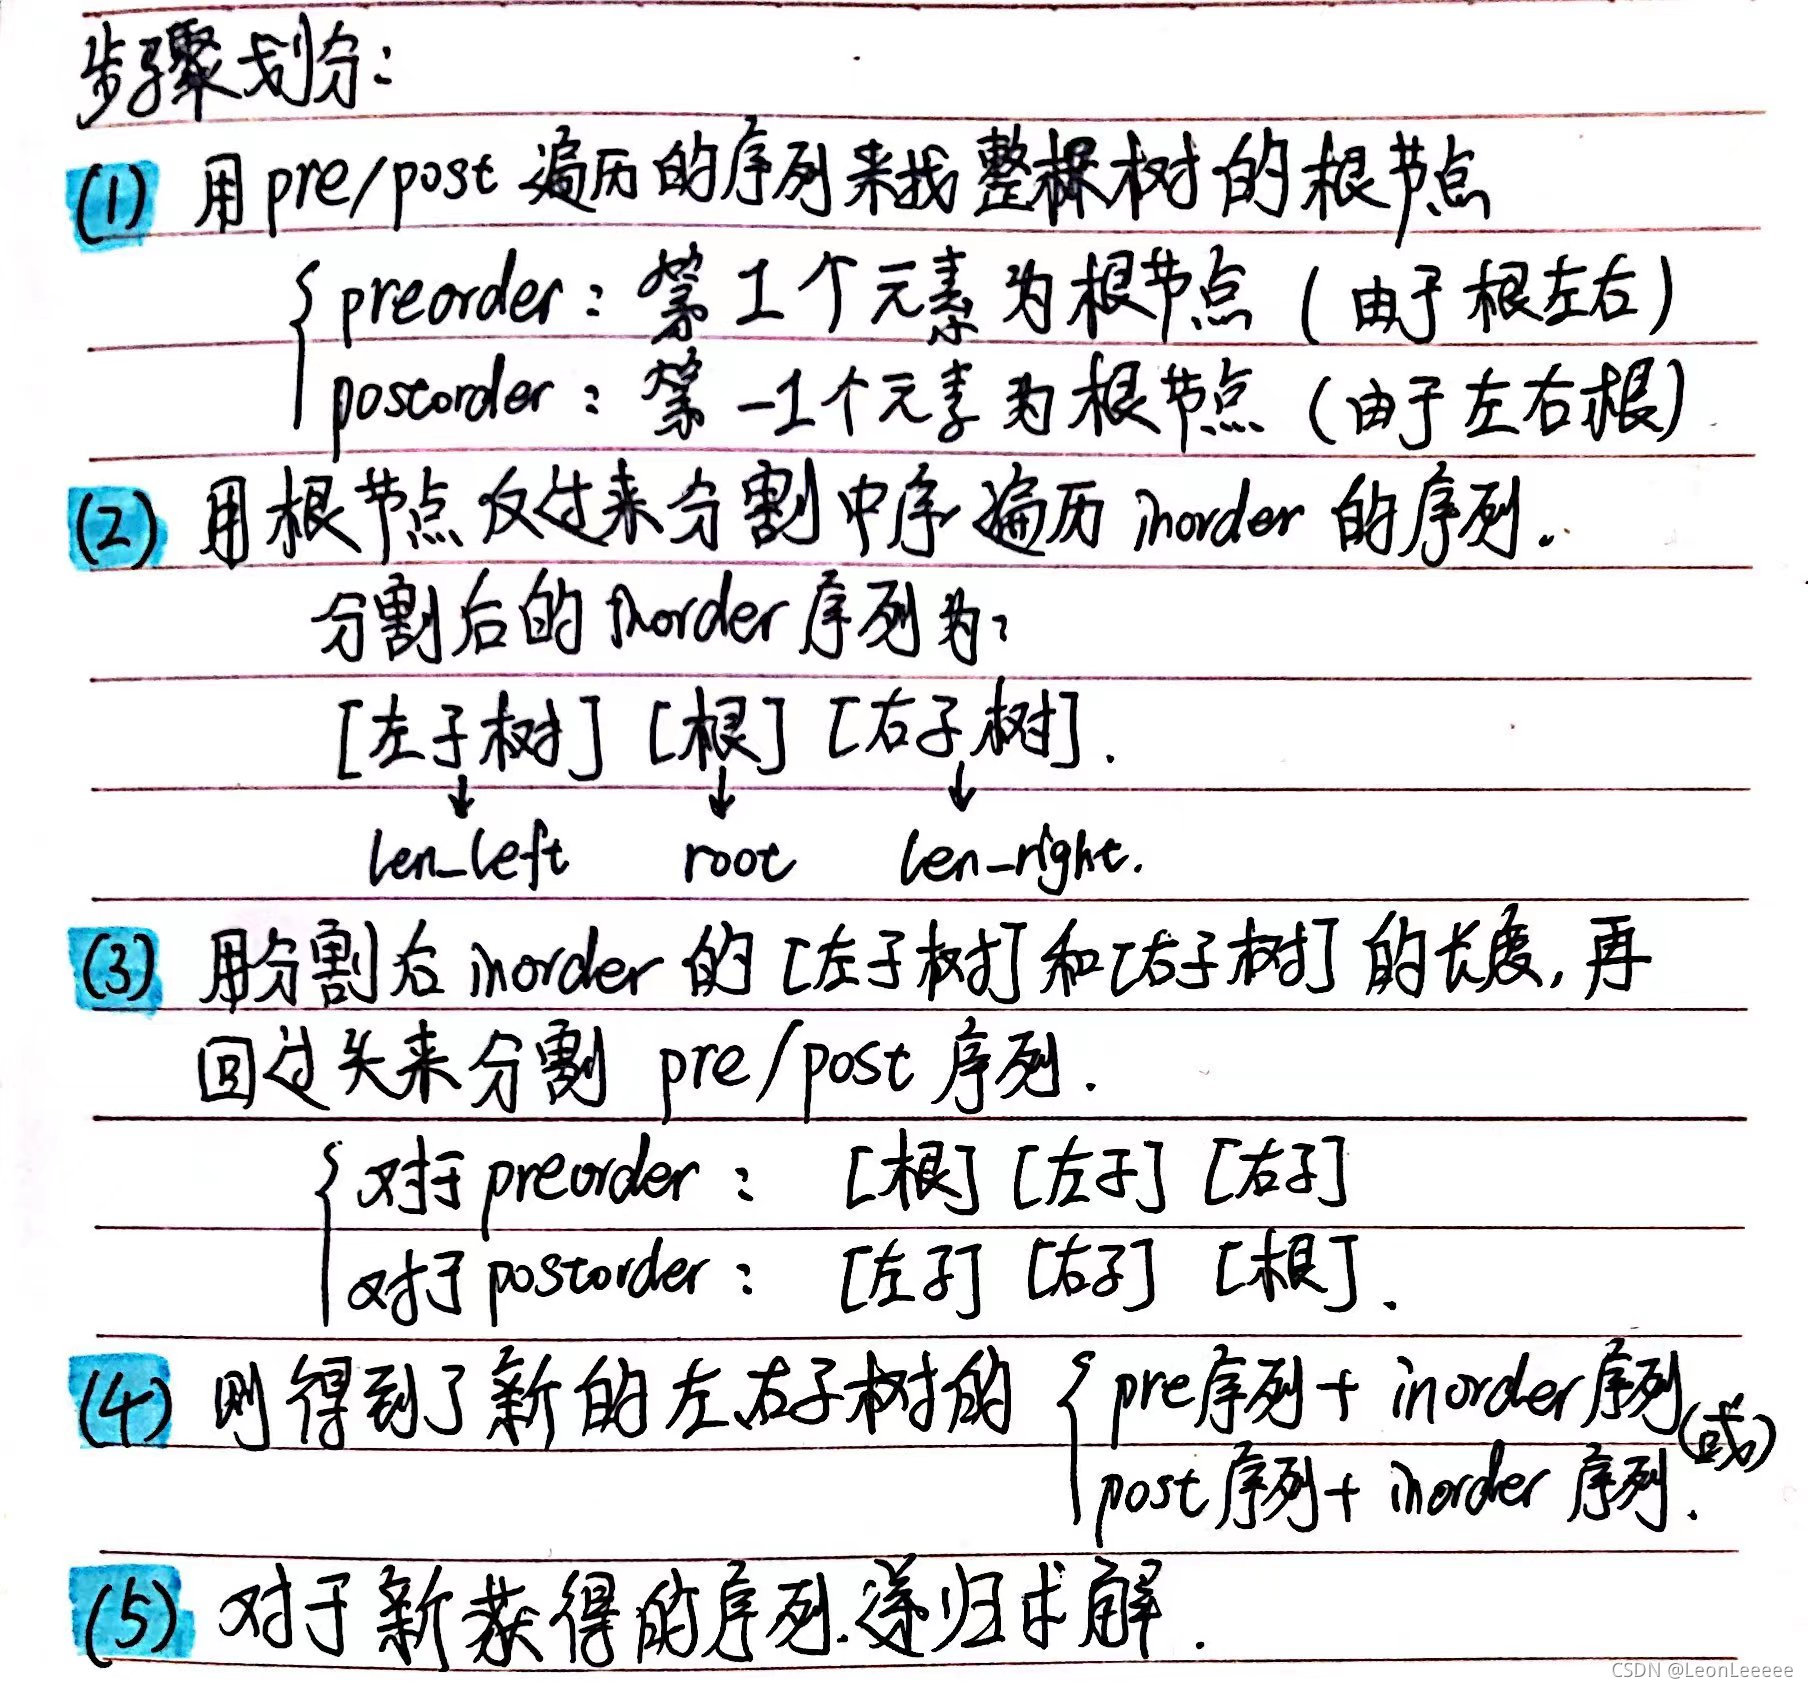 步骤划分：
(1) 用pre/post 遍历的序列来找整棵树的根节点
preorder：第1个元素为根节点（由于根左右）
postorder：第-1个元素为根节点（由于左右根）
(2) 用根节点反过来分割中序遍历inorder的序列.
分割后的inorder序列为：
[左子树] [根] [右子树].
↓ ↓ ↓
len_left root len_right.
(3) 用分割后inorder的[左子树]和[右子树]的长度,再
回过头来分割 pre/post序列.
对于preorder： [根] [左子] [右子]
对于postorder： [左子] [右子] [根].
(4) 则得到了新的左、右子树的 pre序列+inorder序列(或)
post序列+inorder序列.
(5) 对于新获得的序列.递归求解.
CSDN @LeonLeeeee